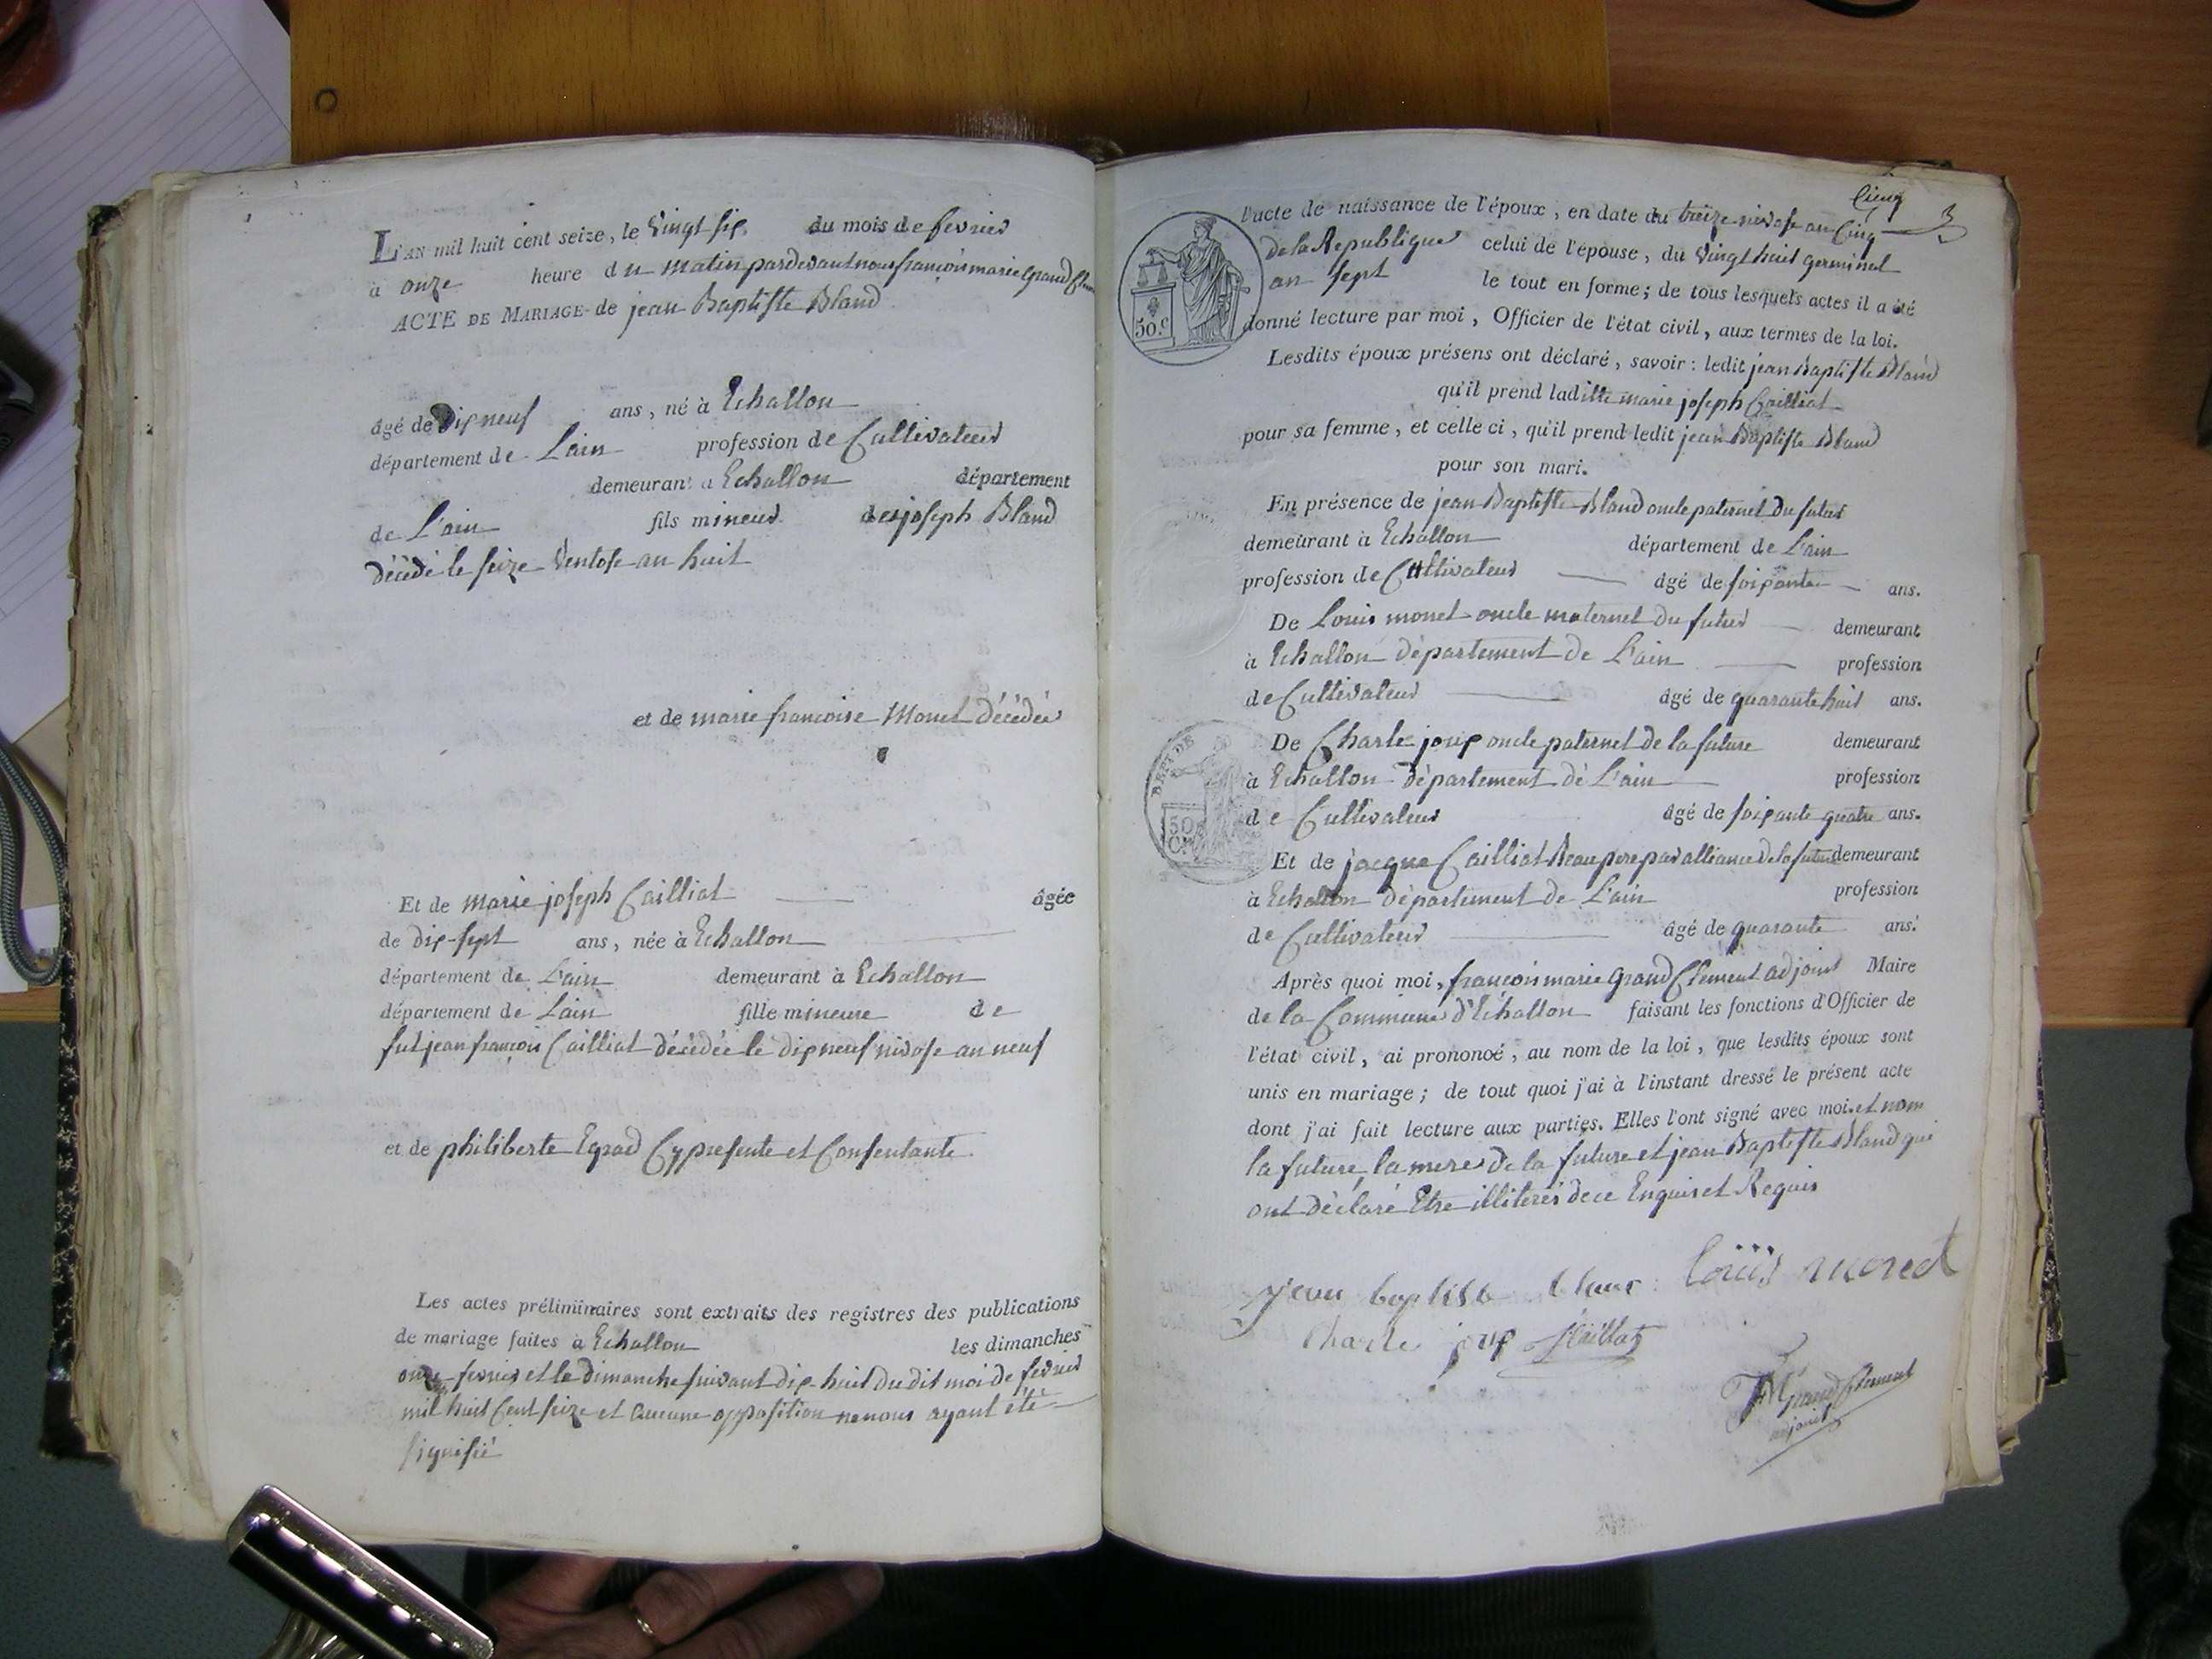 L'AN mil huit cent seize, le vingt six du mois de fevrier
à onze heure du matin pardevant nous françois marie Grand Clement
ACTE DE MARIAGE de jean Baptiste Bland
âgé de dix neuf ans, né à Echallon
département de L'ain profession de Cultivateur
demeurant à Echallon département
de L'ain fils mineur de joseph Bland
décédé le seize Ventose an huit
et de marie françoise Monet décédée
Et de marie joseph Cailliat âgée
de dix-sept ans, née à Echallon
département de L'ain demeurant à Echallon
département de L'ain fille mineure de
fut jean françois Cailliat décédée le dix neuf nivose an neuf
et de philiberte Egrad Cy presente et Consentante
Les actes préliminaires sont extraits des registres des publications
de mariage faites à Echallon les dimanches
onze fevrier et le dimanche suivant dix huit du dit moi de fevrier
mil huit Cent seize et aucune opposition ne nous ayant été
signifié
Cinq
3
l'acte de naissance de l'époux, en date du treize nivose an Cinq
de la Republique celui de l'épouse, du vingt huit germinal
an sept le tout en forme; de tous lesquels actes il a été
50.c
donné lecture par moi, Officier de l'état civil, aux termes de la loi.
Lesdits époux présens ont déclaré, savoir: ledit jean Baptiste Bland
qu'il prend laditte marie joseph Cailliat
pour sa femme, et celle ci, qu'il prend ledit jean Baptiste Bland
pour son mari.
En présence de jean Baptiste Bland oncle paternel du futur
demeurant à Echallon département de L'ain
profession de Cultivateur âgé de soixante ans.
De Louis monet oncle maternel du futur demeurant
à Echallon département de L'ain profession
de Cultivateur âgé de quarante huit ans.
De Charle joux oncle paternel de la future demeurant
à Echallon département de L'ain profession
50
de Cultivateur âgé de soixante quatre ans.
Et de jacque Cailliat Beaupere par alliance de la future demeurant
à Echallon département de L'ain profession
de Cultivateur âgé de quarante ans.
Après quoi moi, françois marie Grand Clement adjoint Maire
de la Commune d'Echallon faisant les fonctions d'Officier de
l'état civil, ai prononcé, au nom de la loi, que lesdits époux sont
unis en mariage; de tout quoi j'ai à l'instant dressé le présent acte
dont j'ai fait lecture aux parties. Elles l'ont signé avec moi. et nom
la future, la mere de la future et jean Baptiste Bland qui
ont déclaré Etre illiterés de ce Enquis et Requis
jean baptiste louis monet
Charle joux Caillat
FM Grand Clement
adjoint